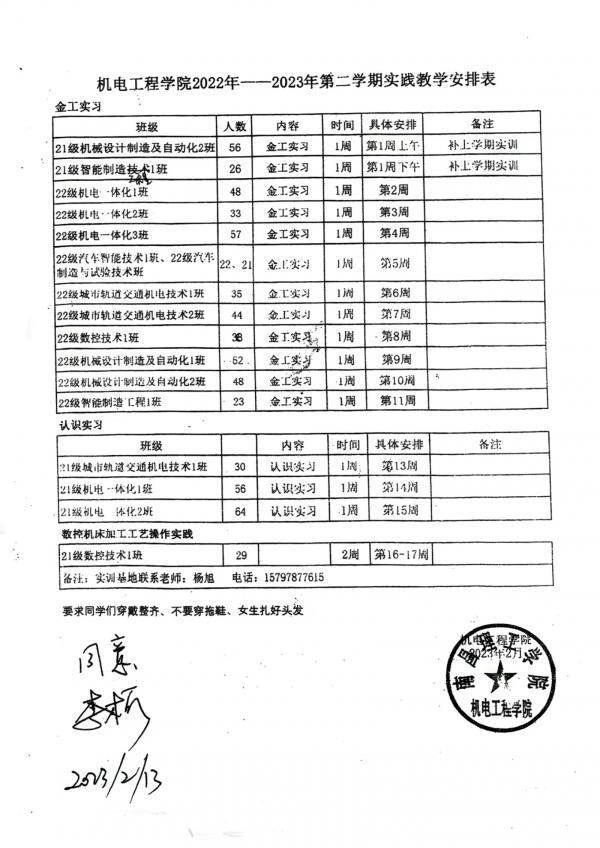 机电工程学院2022年——2023年第二学期实践教学安排表
金工实习
班级 人数 内容 时间 具体安排 备注
21级机械设计制造及自动化2班 56 金工实习 1周 第1周上午 补上学期实训
21级智能制造技术1班 26 金工实习 1周 第1周下午 补上学期实训
工程
22级机电一体化1班 48 金工实习 1周 第2周
22级机电一体化2班 33 金工实习 1周 第3周
22级机电一体化3班 57 金工实习 1周 第4周
22级汽车智能技术1班、22级汽车
制造与试验技术班 22、21 金工实习 1周 第5周
22级城市轨道交通机电技术1班 35 金工实习 1周 第6周
22级城市轨道交通机电技术2班 44 金工实习 1周 第7周
22级数控技术1班 38 金工实习 1周 第8周
22级机械设计制造及自动化1班 52 金工实习 1周 第9周
22级机械设计制造及自动化2班 48 金工实习 1周 第10周
22级智能制造工程1班 23 金工实习 1周 第11周
认识实习
班级 内容 时间 具体安排 备注
21级城市轨道交通机电技术1班 30 认识实习 1周 第13周
21级机电一体化1班 56 认识实习 1周 第14周
21级机电一体化2班 64 认识实习 1周 第15周
数控机床加工工艺操作实践
21级数控技术1班 29 2周 第16-17周
备注：实训基地联系老师：杨旭 电话：15797877615
要求同学们穿戴整齐、不要穿拖鞋、女生扎好头发
机电工程学院
2023年2月
南昌理工学院
机电工程学院
同意
2023/2/13